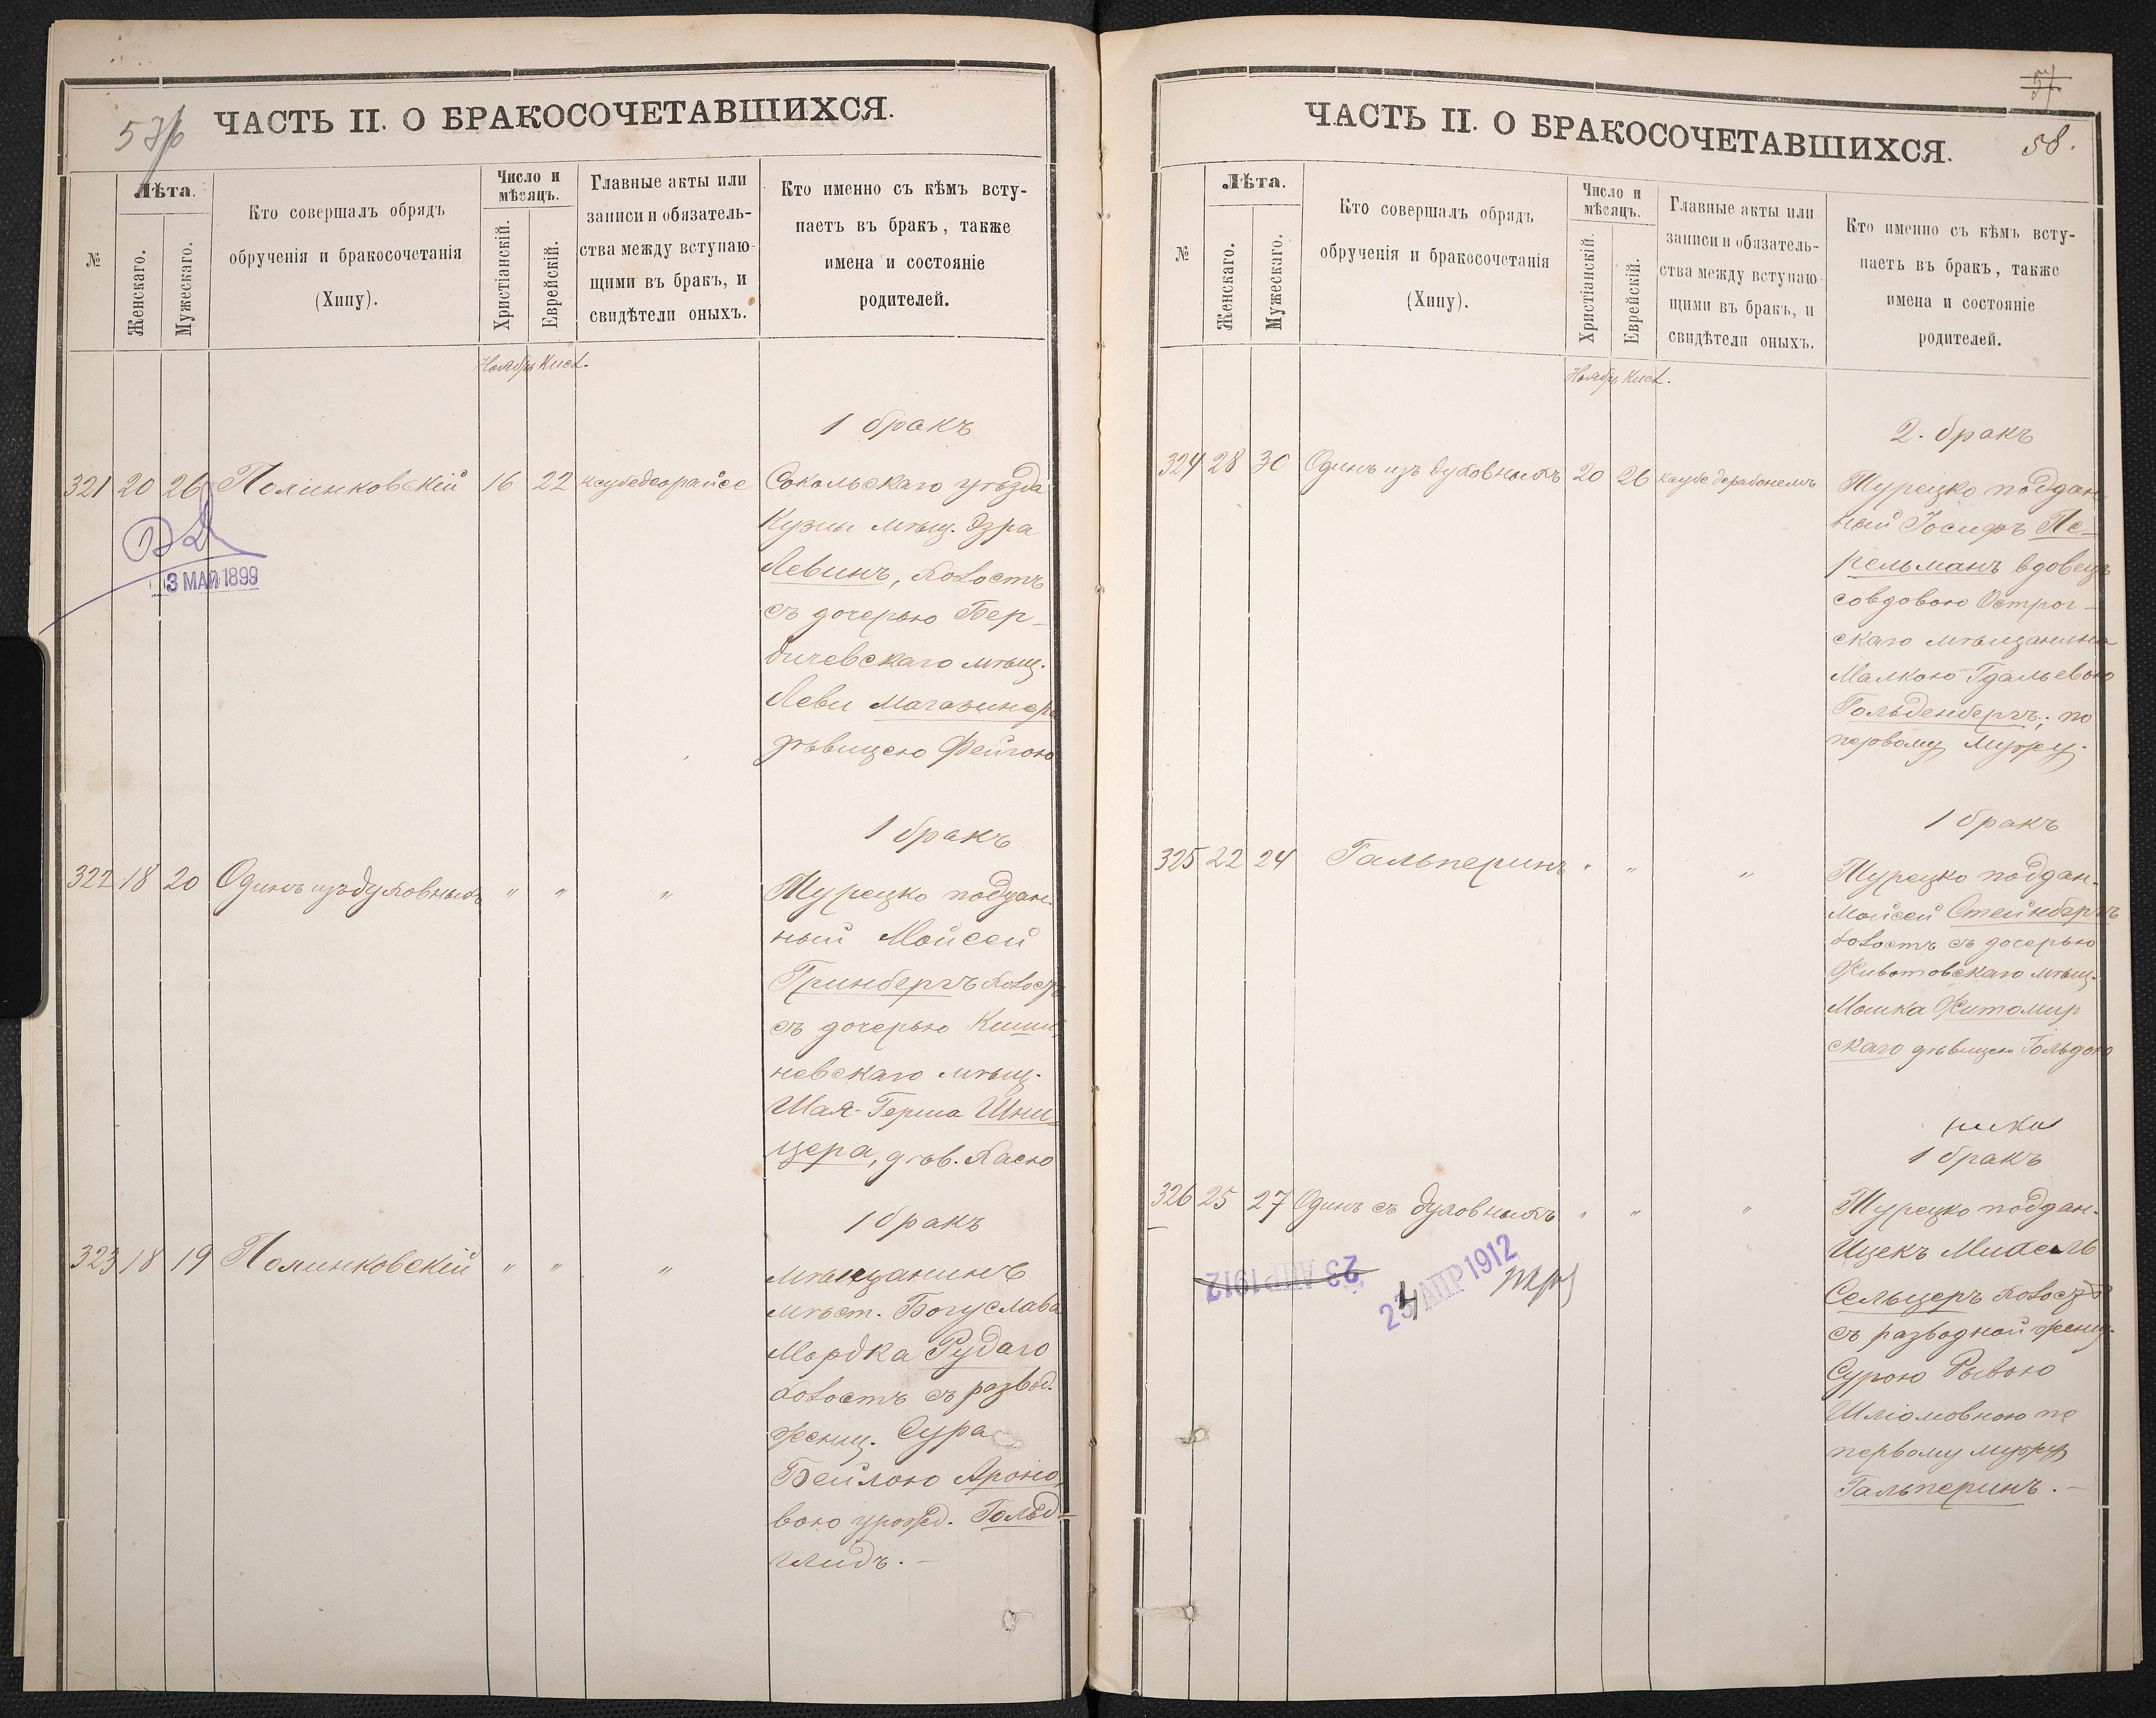 57/б
ЧАСТЬ II. О БРАКОСОЧЕТАВШИХСЯ.
№
Лѣта.
Женскаго.
Мужескаго.
Кто совершалъ обрядъ
обрученія и бракосочетанія
(Хипу).
Число и
мѣсяцъ.
Христіанскій.
Еврейскій.
Главные акты или
записи и обязатель-
ства между вступаю-
щими въ бракъ, и
свидѣтели оныхъ.
Кто именно съ кѣмъ всту-
паетъ въ бракъ, также
имена и состояніе
родителей.
Ноябрь Кисл.
1 бракъ
321 20 26 Полинковскій 16 22 ксубедеорайсе Сокольскаго уѣзда
Кузны мѣщ. Эзра
Левинъ, холостъ
съ дочерью Бер-
дичевскаго мѣщ.
Леви Магазинера
дѣвицею Фейгою
3 МАЙ 1899
1 бракъ
322 18 20 Одинъ изъ духовныхъ " " " Турецко поддан-
ный Мойсей
Гринбергъ холостъ
съ дочерью Киши-
невскаго мѣщ.
Шая-Герша Шни-
цера, дѣв. Хасю
1 бракъ
323 18 19 Полинковскій " " " Мѣщанинъ
мѣст. Богуслава
Мордка Рудаго
холостъ съ развод.
женщ. Сура
Бейлою Ароно-
вою урожд. Гольд-
глидъ. –
57
58.
ЧАСТЬ II. О БРАКОСОЧЕТАВШИХСЯ.
№
Лѣта.
Женскаго.
Мужескаго.
Кто совершалъ обрядъ
обрученія и бракосочетанія
(Хипу).
Число и
мѣсяцъ.
Христіанскій.
Еврейскій.
Главные акты или
записи и обязатель-
ства между вступаю-
щими въ бракъ, и
свидѣтели оныхъ.
Кто именно съ кѣмъ всту-
паетъ въ бракъ, также
имена и состояніе
родителей.
Ноябрь Кисл.
2. бракъ
324 28 30 Одинъ изъ духовныхъ 20 26 ксубе дерабонемъ Турецко поддан-
ный Іосифъ Пе-
рельманъ вдовецъ
со вдовою Острог-
скаго мѣщанина
Малкою Гдальевою
Гольденбергъ; по
первому мужу.
1 бракъ
325 22 24 Гальперинъ " " " Турецко поддан-
Мойсей Стейнбергъ
холостъ съ дочерью
Животовскаго мѣщ.
Мошка Житомир
скаго дѣвицею Гольдою
1 бракъ
326 25 27 Одинъ съ духовныхъ " " " Турецко поддан-
Ицекъ Михель
Сельцеръ холостъ
съ разводной женщ.
Сурою Рывою
Шліомовною по
первому мужу
Гальперинъ. –
23 АПР 1912
23 АПР 1912